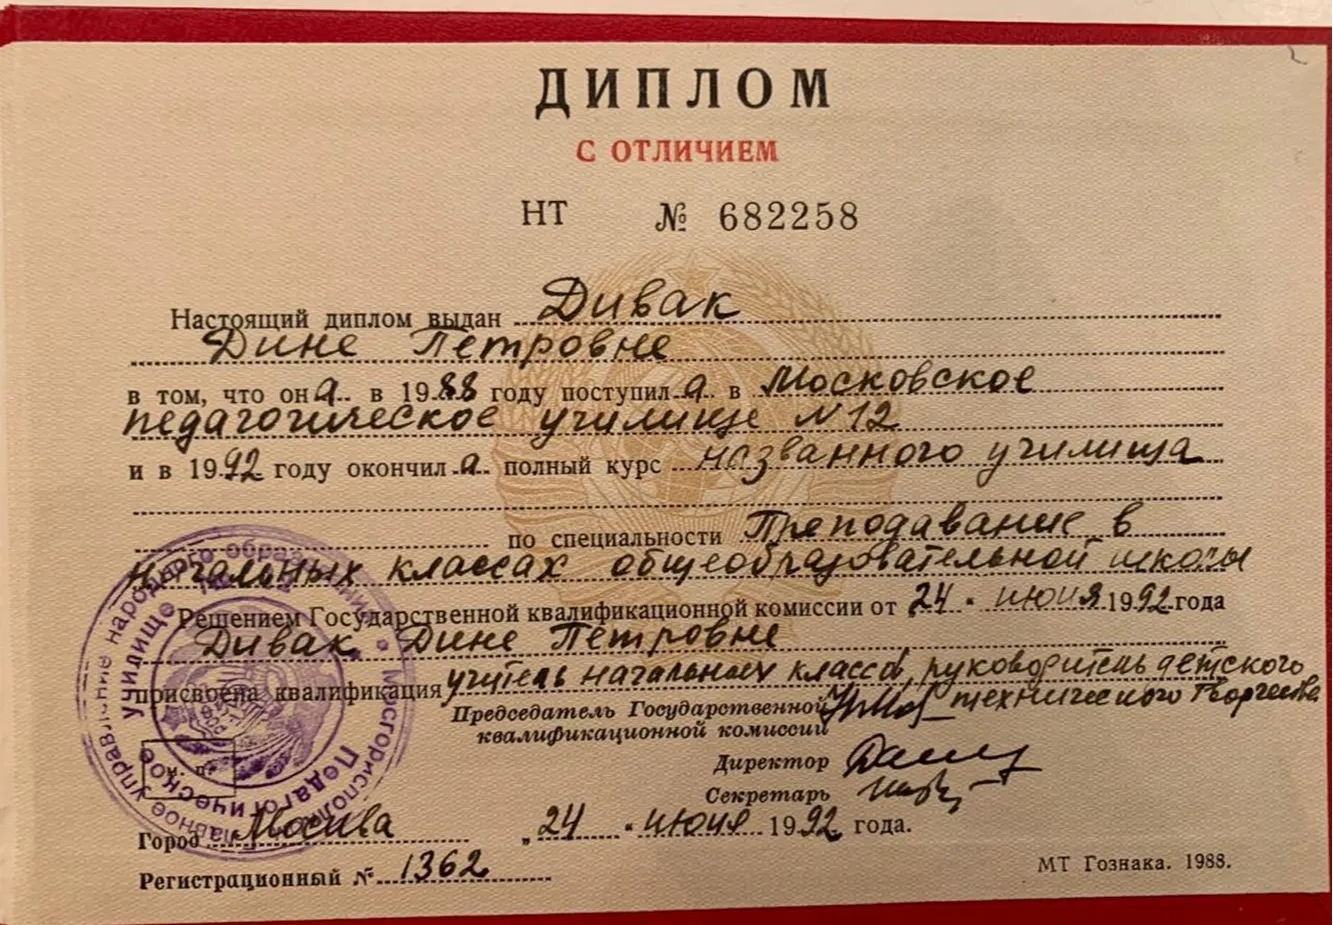 ДИПЛОМ
С ОТЛИЧИЕМ
НТ № 682258
Настоящий диплом выдан Дивак
Дине Петровне
в том, что она в 1988 году поступила в Московское
педагогическое училище №12
и в 1992 году окончила полный курс названного училища
по специальности Преподавание в
начальных классах общеобразовательной школы
Решением Государственной квалификационной комиссии от 24 июня 1992 года
Дивак Дине Петровне
присвоена квалификация учитель начальных классов, руководитель детского
технического творчества
Председатель Государственной
квалификационной комиссии
Директор
Секретарь
Город Москва „24" июня 1992 года.
Регистрационный № 1362
МТ Гознака. 1988.
м. п.
Главное управление народного образования Мосгорисполкома
Педагогическое училище